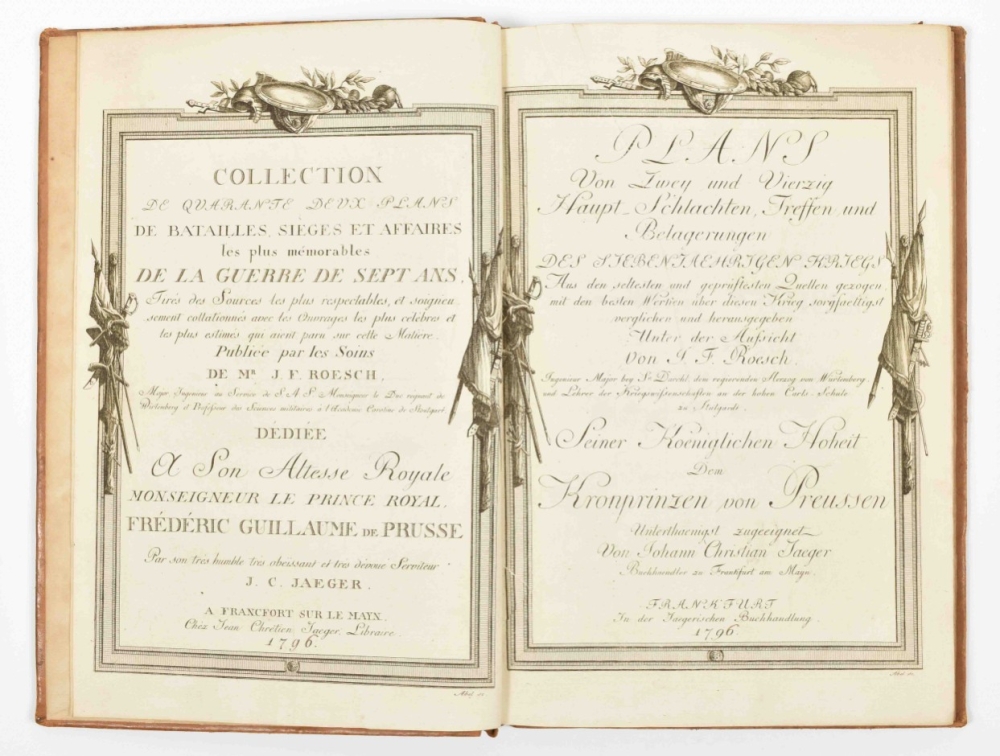 COLLECTION
DE QUARANTE DEUX PLANS
DE BATAILLES, SIÈGES ET AFFAIRES
les plus mémorables
DE LA GUERRE DE SEPT ANS.
Tirés des Sources les plus respectables, et soigneu
sement collationnés avec les Ouvrages les plus celebres et
les plus estimés qui aient paru sur cette Matière.
Publiée par les Soins
DE MR J. F. ROESCH,
Major Ingenieur au Service de S.A.S. Monseigneur le Duc regnant de
Wirtemberg et Professeur des Sciences militaires à l'Academie Caroline de Stoutgart
DÉDIÉE
A Son Altesse Royale
MONSEIGNEUR LE PRINCE ROYAL.
FRÉDÉRIC GUILLAUME DE PRUSSE
Par son très humble très obeissant et très devoué Serviteur
J. C. JAEGER.
A FRANCFORT SUR LE MAYN.
Chéz Jean Chrétien Jaeger, Libraire
1796.
PLANS
Von Zwey und Vierzig
Haupt-Schlachten, Treffen und
Belagerungen
DES SIEBENJAEHRIGEN KRIEGS
Aus den seltesten und geprüftesten Quellen gezogen,
mit den besten Werken über diesen Krieg sorgfaeltigst
verglichen und herausgegeben
Unter der Aufsicht
von J. F. Roesch,
Ingenieur Major bey Sr Durchl. dem regierenden Herzog von Würtemberg
und Lehrer der Kriegswissenschaften an der hohen Carls-Schule
zu Stutgardt.
Seiner Koeniglichen Hoheit
Dem
Kronprinzen von Preussen
Unterthaenigst zugeeignet
Von Johann Christian Jaeger
Buchhaendler zu Frankfurt am Mayn.
FRANKFURT
In der Jaegerischen Buchhandlung.
1796.